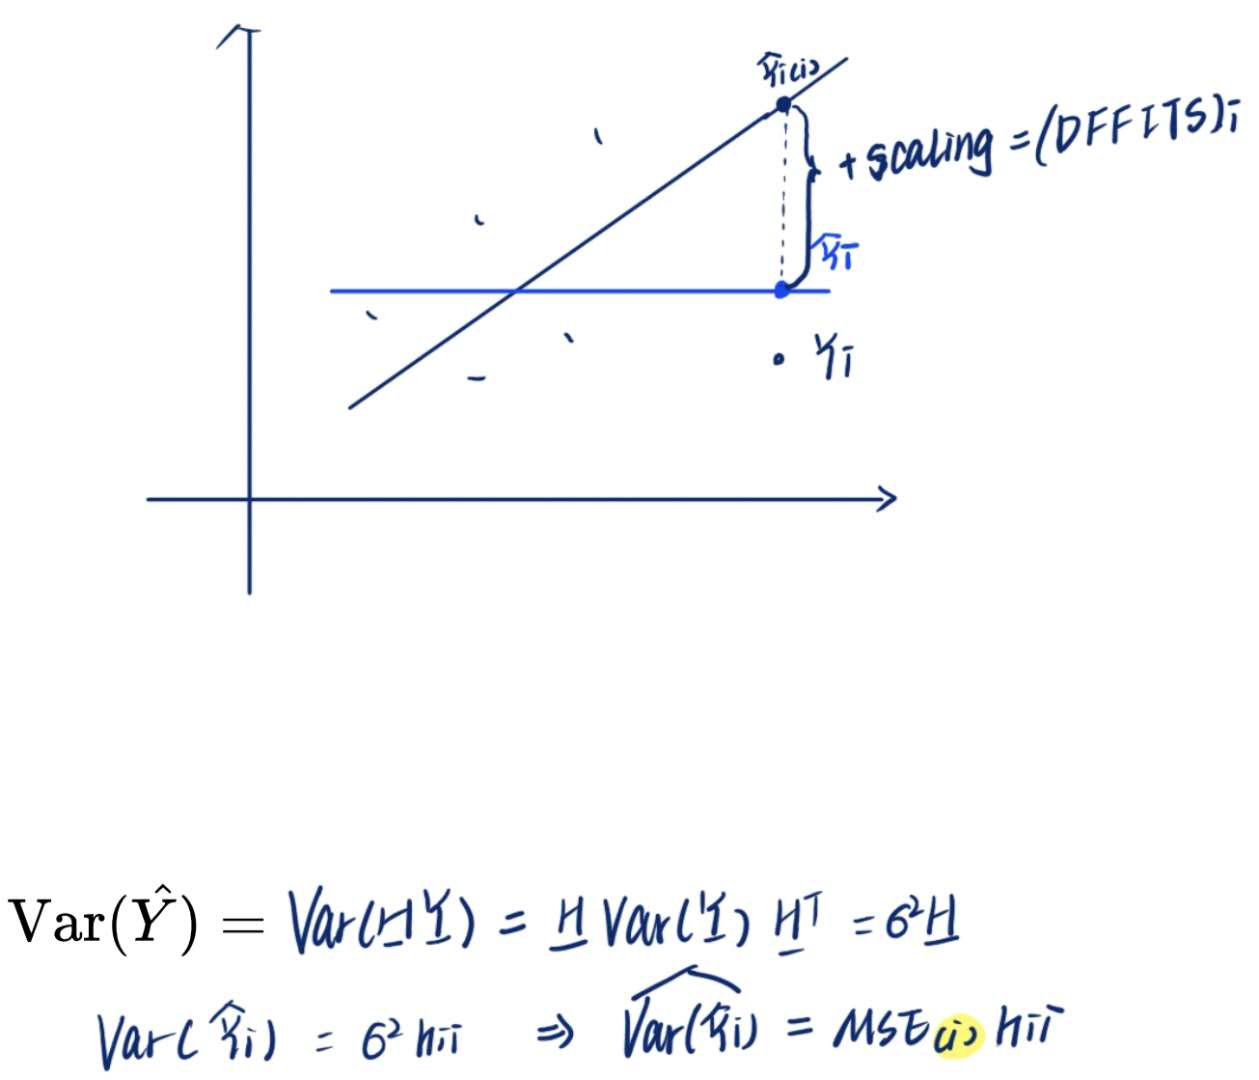 Ŷi(i)
+ scaling = (DFFITS)i
Ŷi
Yi
Var(Ŷ) = Var(HY) = H Var(Y) Hᵀ = σ²H
Var(Ŷi) = σ² hii ⇒ V̂ar(Ŷi) = MSE(i) hii